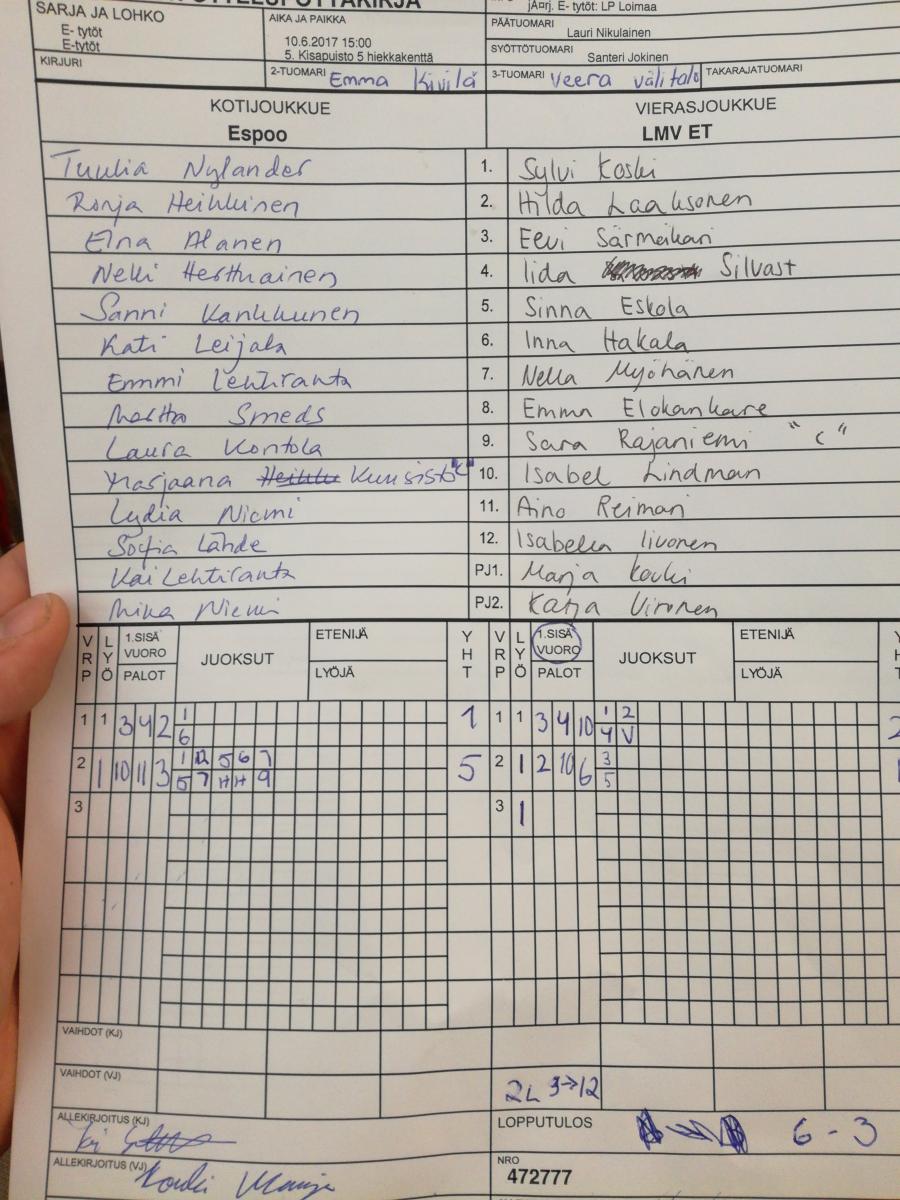 OTTELUPÖYTÄKIRJA
jÃ¤rj. E- tytöt: LP Loimaa
SARJA JA LOHKO
E- tytöt
E-tytöt
AIKA JA PAIKKA
10.6.2017 15:00
5. Kisapuisto 5 hiekkakenttä
PÄÄTUOMARI
Lauri Nikulainen
SYÖTTÖTUOMARI
Santeri Jokinen
KIRJURI
2-TUOMARI Emma Kivilä
3-TUOMARI Veera välitalo
TAKARAJATUOMARI
KOTIJOUKKUE
Espoo
VIERASJOUKKUE
LMV ET
Tuulia Nylander 1. Sylvi Koski
Ronja Heikkinen 2. Hilda Laaksonen
Elna Alanen 3. Eevi Särmäkari
Nelli Herttuainen 4. Iida Silvast
Sanni Kankkunen 5. Sinna Eskola
Kati Leijala 6. Inna Hakala
Emmi Lehtiranta 7. Nella Myöhänen
Martta Smeds 8. Emma Elokankare
Laura Kontola 9. Sara Rajaniemi "C"
Marjaana Heikku Kuusisto "C" 10. Isabel Lindman
Lydia Niemi 11. Aino Reiman
Sofia Lähde 12. Isabella Iivonen
Kai Lehtiranta PJ1. Marja Kouki
Mika Niemi PJ2. Katja Vironen
VRP LYÖ 1.SISÄ VUORO PALOT JUOKSUT ETENIJÄ LYÖJÄ YHT VRP LYÖ 1.SISÄ VUORO PALOT JUOKSUT ETENIJÄ LYÖJÄ YHT
1 1 3 4 2 1 1 1 1 3 4 10 1 2 2
6 4 V
2 1 10 11 3 1 12 5 6 7 5 2 1 2 10 6 3 1
5 7 H H 9 5
3 3 1
VAIHDOT (KJ)
VAIHDOT (VJ)
2L 3→12
ALLEKIRJOITUS (KJ)
LOPPUTULOS 6 - 3
ALLEKIRJOITUS (VJ) Kouki Marja
NRO
472777